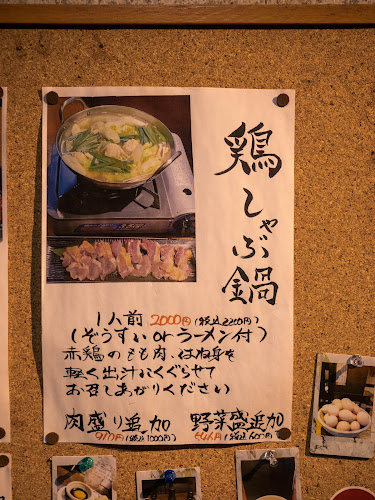 鶏しゃぶ鍋
1人前 2000円(税込2200円)
(ぞうすい or ラーメン付)
赤鶏のもも肉、はね身を
軽く出汁にくぐらせて
お召しあがりください
肉盛り追加 野菜盛追加
(税込1000円) (税込600円)